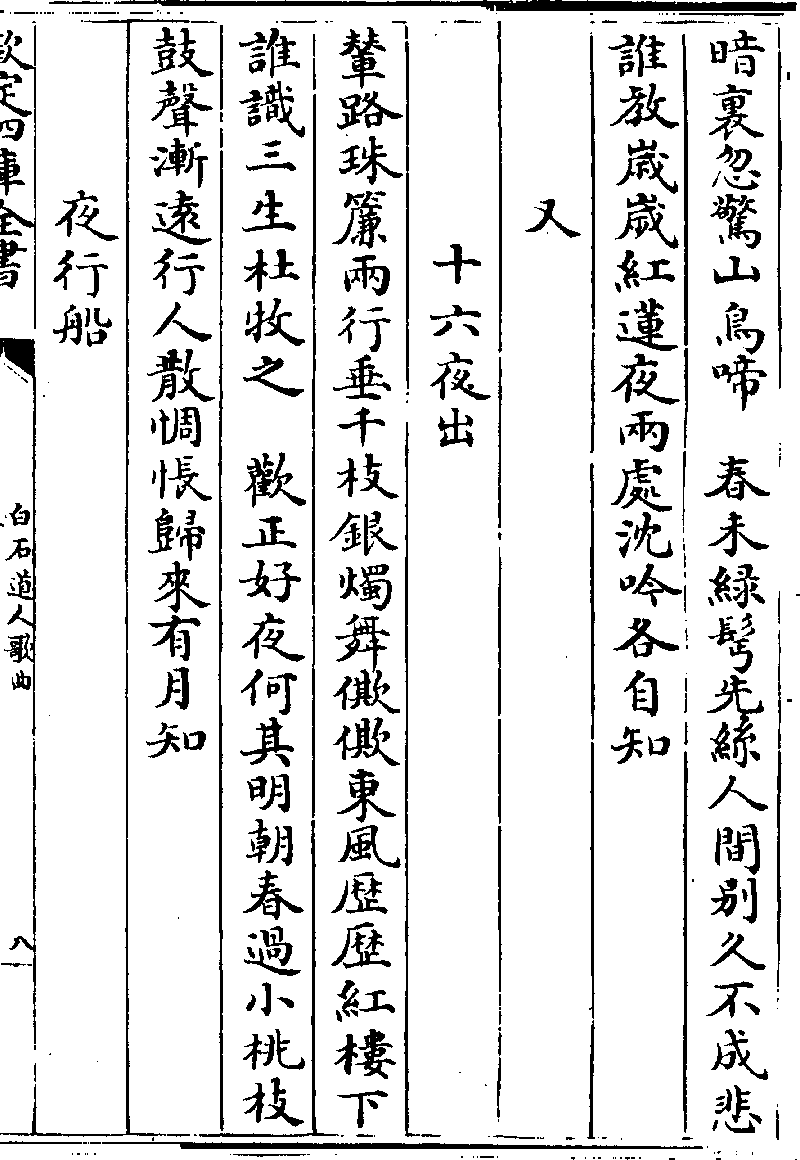 暗裏忽驚山鳥啼　春未緑髩先絲人間别久不成悲
誰教嵗嵗紅蓮夜兩處沈吟各自知
又
十六夜出
輦路珠簾兩行垂千枝銀燭舞僛僛東風歴歴紅樓下
誰識三生杜牧之　歡正好夜何其明朝春過小桃枝
鼓聲漸逺行人散惆悵歸來有月知
夜行船
欽定四庫全書
白石道人歌曲
八